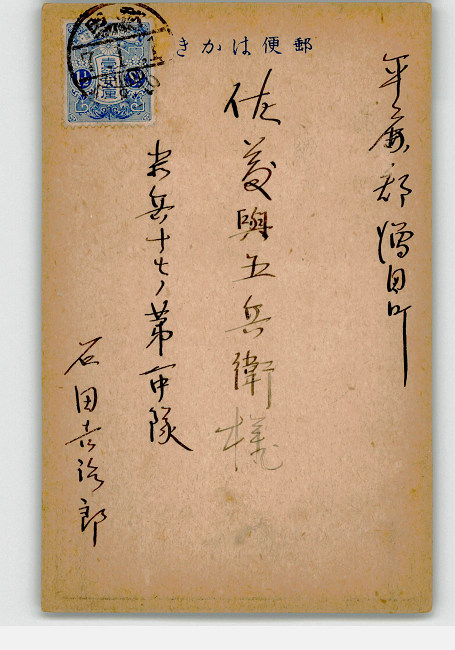 郵便はかき
平鹿郡増田町
佐藤與五兵衛様
歩兵十七ノ第一中隊
石田吉治郎